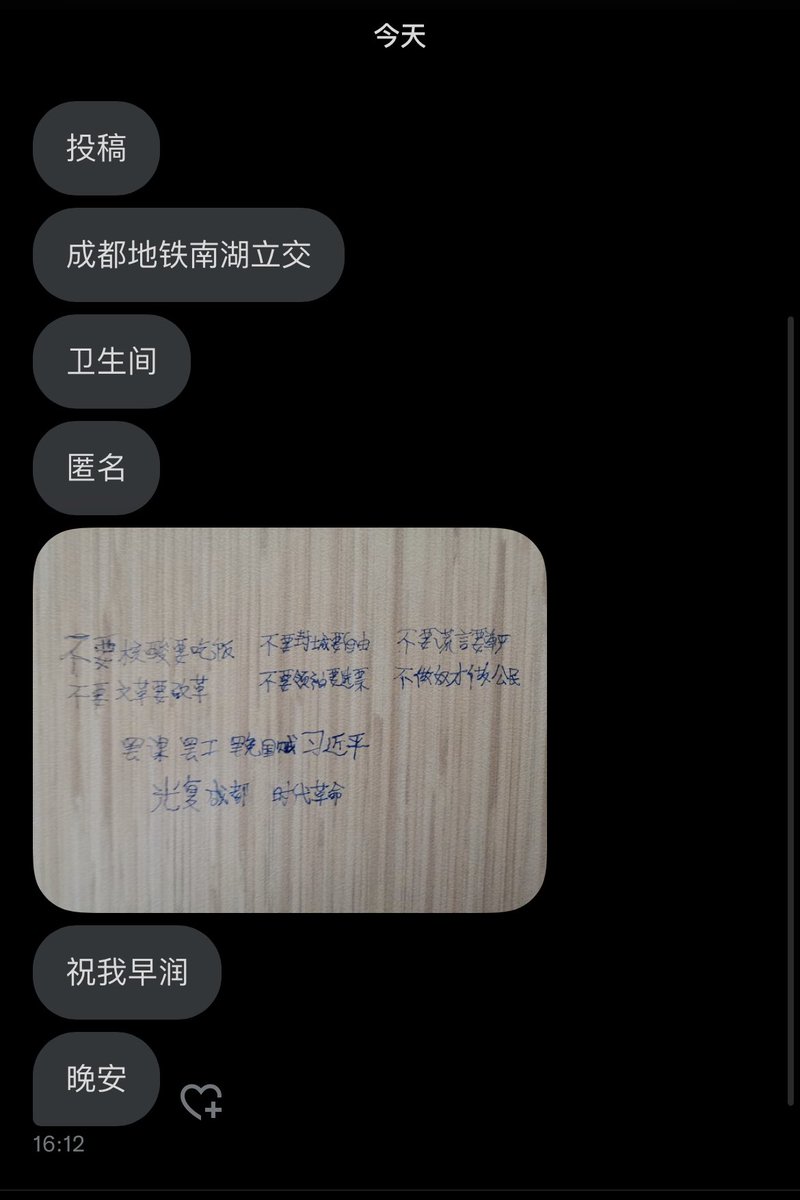 今天
投稿
成都地铁南湖立交
卫生间
匿名
不要核酸要吃饭 不要封城要自由 不要谎言要尊严
不要文革要改革 不要领袖要选票 不做奴才做公民
罢课 罢工 罢免国贼习近平
光复成都 时代革命
祝我早润
晚安
16:12